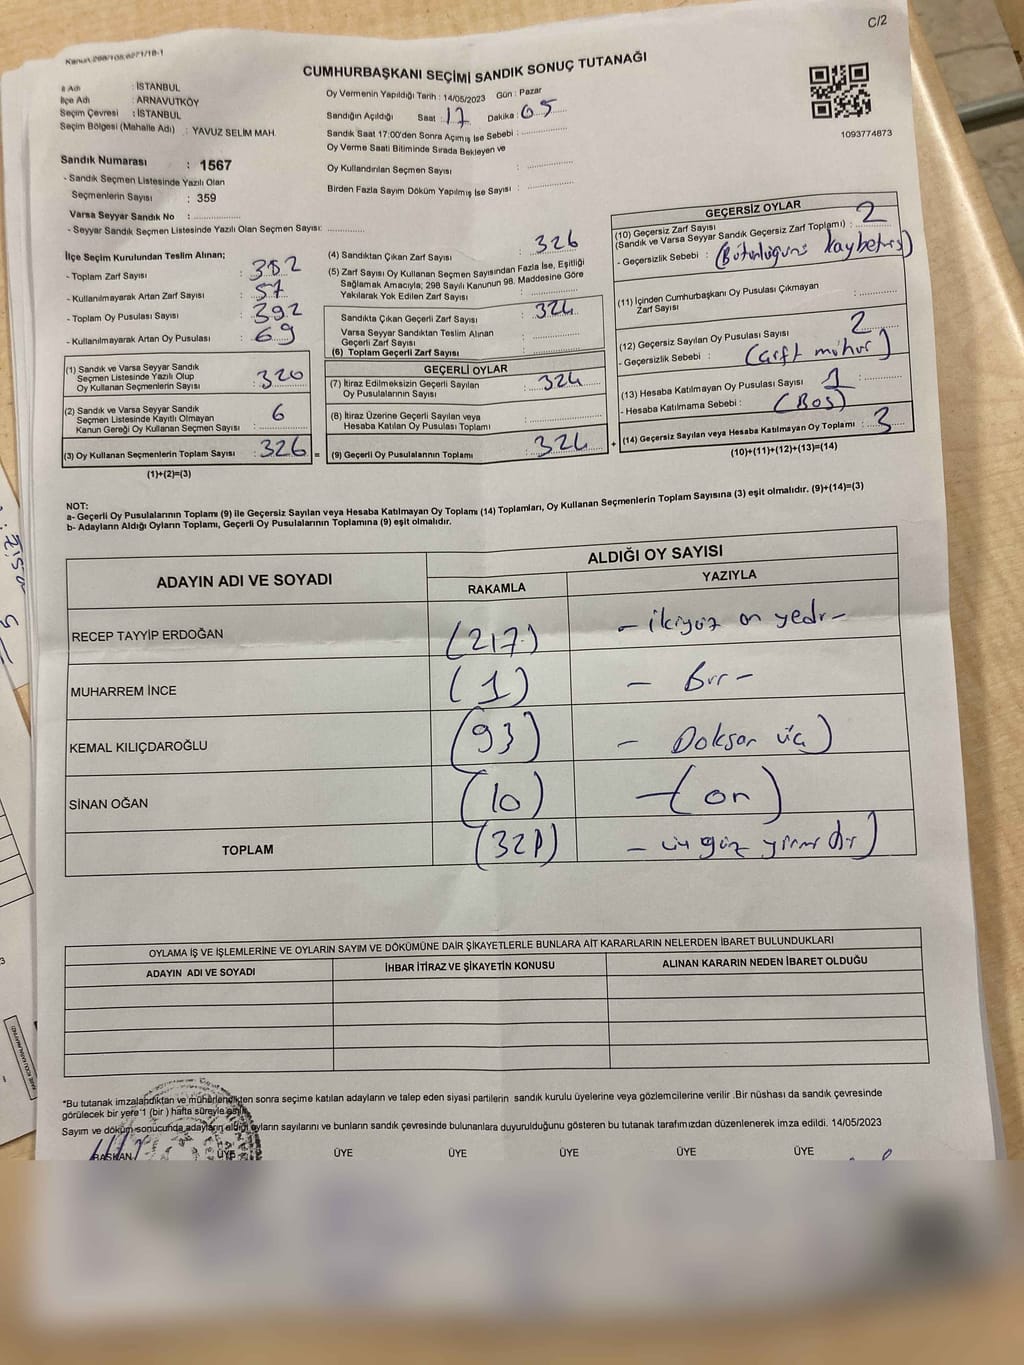 C/2
Kanun:298/108,6271/18-1
CUMHURBAŞKANI SEÇİMİ SANDIK SONUÇ TUTANAĞI
İl Adı : İSTANBUL
İlçe Adı : ARNAVUTKÖY
Seçim Çevresi : İSTANBUL
Seçim Bölgesi (Mahalle Adı) : YAVUZ SELİM MAH.
Oy Vermenin Yapıldığı Tarih : 14/05/2023 Gün : Pazar
Sandığın Açıldığı Saat : 17 Dakika : 05
Sandık Saat 17:00'den Sonra Açımış İse Sebebi :
Oy Verme Saati Bitiminde Sırada Bekleyen ve
Oy Kullandırılan Seçmen Sayısı :
Birden Fazla Sayım Döküm Yapılmış İse Sayısı :
1093774873
Sandık Numarası : 1567
- Sandık Seçmen Listesinde Yazılı Olan
Seçmenlerin Sayısı : 359
Varsa Seyyar Sandık No :
- Seyyar Sandık Seçmen Listesinde Yazılı Olan Seçmen Sayısı:
İlçe Seçim Kurulundan Teslim Alınan;
- Toplam Zarf Sayısı : 382
- Kullanılmayarak Artan Zarf Sayısı : 57
- Toplam Oy Pusulası Sayısı : 392
- Kullanılmayarak Artan Oy Pusulası : 69
(1) Sandık ve Varsa Seyyar Sandık
Seçmen Listesinde Yazılı Olup
Oy Kullanan Seçmenlerin Sayısı : 320
(2) Sandık ve Varsa Seyyar Sandık
Seçmen Listesinde Kayıtlı Olmayan
Kanun Gereği Oy Kullanan Seçmen Sayısı : 6
(3) Oy Kullanan Seçmenlerin Toplam Sayısı : 326 =
(1)+(2)=(3)
(4) Sandıktan Çıkan Zarf Sayısı : 326
(5) Zarf Sayısı Oy Kullanan Seçmen Sayısından Fazla İse, Eşitliği
Sağlamak Amacıyla; 298 Sayılı Kanunun 98. Maddesine Göre
Yakılarak Yok Edilen Zarf Sayısı :
Sandıkta Çıkan Geçerli Zarf Sayısı : 324
Varsa Seyyar Sandıktan Teslim Alınan
Geçerli Zarf Sayısı :
(6) Toplam Geçerli Zarf Sayısı :
GEÇERLİ OYLAR
(7) İtiraz Edilmeksizin Geçerli Sayılan
Oy Pusulalarının Sayısı : 324
(8) İtiraz Üzerine Geçerli Sayılan veya
Hesaba Katılan Oy Pusulası Toplamı :
(9) Geçerli Oy Pusulalarının Toplamı : 324 +
GEÇERSİZ OYLAR
(10) Geçersiz Zarf Sayısı
(Sandık ve Varsa Seyyar Sandık Geçersiz Zarf Toplamı) : 2
- Geçersizlik Sebebi : (Bütünlüğünü kaybetmiş)
(11) İçinden Cumhurbaşkanı Oy Pusulası Çıkmayan
Zarf Sayısı :
(12) Geçersiz Sayılan Oy Pusulası Sayısı : 2
- Geçersizlik Sebebi : (Çift mühür)
(13) Hesaba Katılmayan Oy Pusulası Sayısı : 1
- Hesaba Katılmama Sebebi : (Boş)
(14) Geçersiz Sayılan veya Hesaba Katılmayan Oy Toplamı : 3
(10)+(11)+(12)+(13)=(14)
NOT:
a- Geçerli Oy Pusulalarının Toplamı (9) ile Geçersiz Sayılan veya Hesaba Katılmayan Oy Toplamı (14) Toplamları, Oy Kullanan Seçmenlerin Toplam Sayısına (3) eşit olmalıdır. (9)+(14)=(3)
b- Adayların Aldığı Oyların Toplamı, Geçerli Oy Pusulalarının Toplamına (9) eşit olmalıdır.
ADAYIN ADI VE SOYADI ALDIĞI OY SAYISI
RAKAMLA YAZIYLA
RECEP TAYYİP ERDOĞAN (217) - ikiyüz on yedi -
MUHARREM İNCE (1) - Bir -
KEMAL KILIÇDAROĞLU (93) - Doksan üç)
SİNAN OĞAN (10) - (on)
TOPLAM (321) - üç yüz yirmi bir)
OYLAMA İŞ VE İŞLEMLERİNE VE OYLARIN SAYIM VE DÖKÜMÜNE DAİR ŞİKAYETLERLE BUNLARA AİT KARARLARIN NELERDEN İBARET BULUNDUKLARI
ADAYIN ADI VE SOYADI İHBAR İTİRAZ VE ŞİKAYETİN KONUSU ALINAN KARARIN NEDEN İBARET OLDUĞU
*Bu tutanak imzalandıktan ve mühürlendikten sonra seçime katılan adayların ve talep eden siyasi partilerin sandık kurulu üyelerine veya gözlemcilerine verilir .Bir nüshası da sandık çevresinde
görülecek bir yere 1 (bir) hafta süreyle asılır.
Sayım ve döküm sonucunda adayların aldığı oyların sayılarını ve bunların sandık çevresinde bulunanlara duyurulduğunu gösteren bu tutanak tarafımızdan düzenlenerek imza edildi. 14/05/2023
BAŞKAN ÜYE ÜYE ÜYE ÜYE ÜYE ÜYE